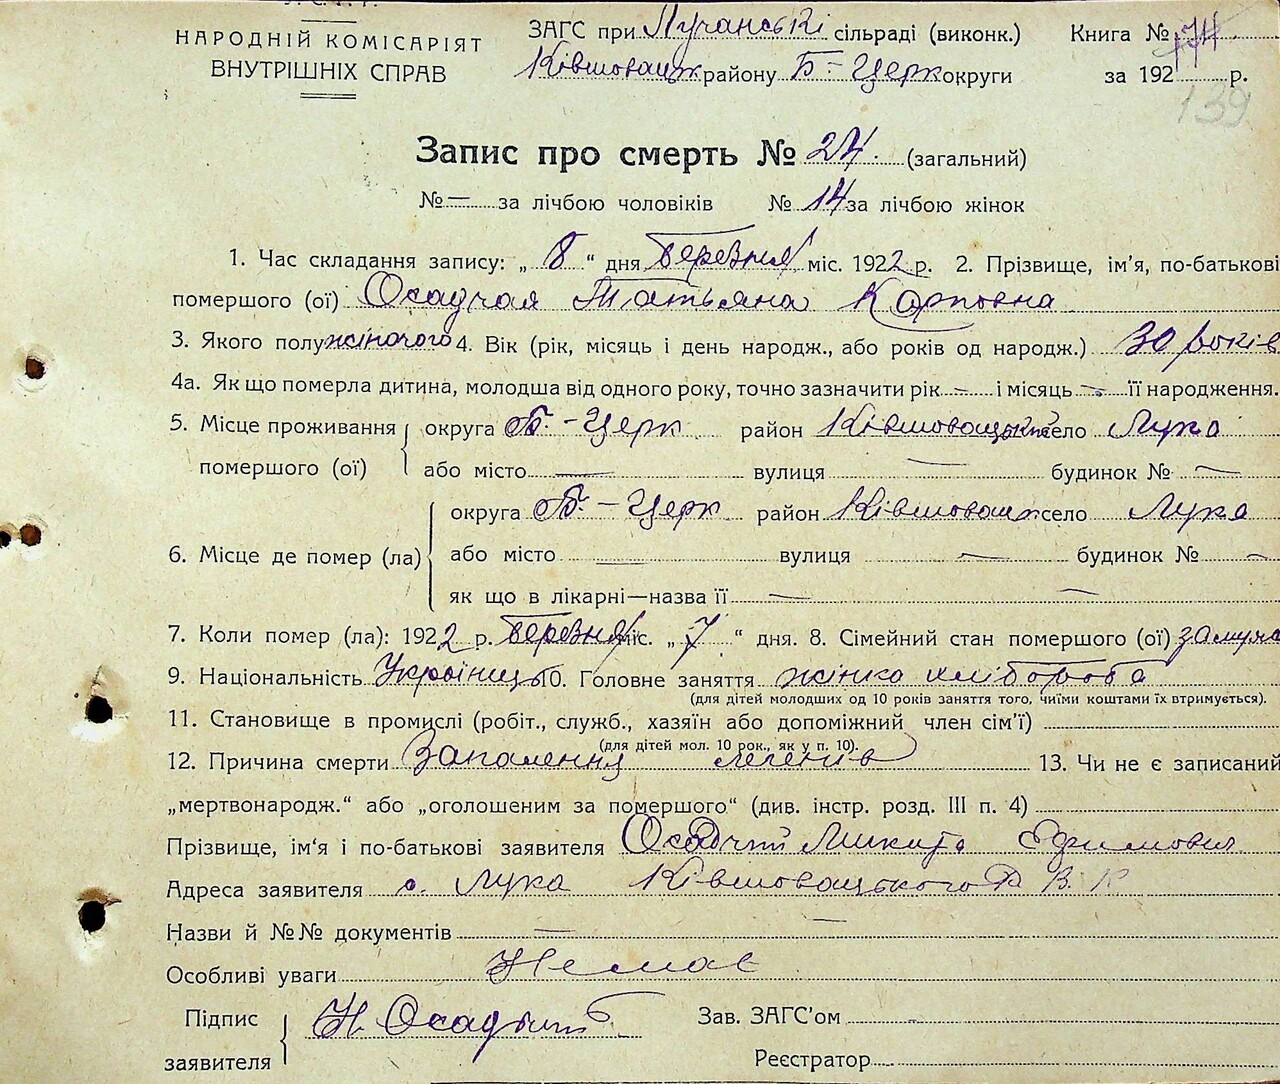 НАРОДНІЙ КОМІСАРІЯТ
ВНУТРІШНІХ СПРАВ
ЗАГС при Лучанські сільраді (виконк.)
Ківшовацьк району Б-Церк округи
Книга №
за 192 р.
139
Запис про смерть № 24. (загальний)
№ — за лічбою чоловіків № 14 за лічбою жінок
1. Час складання запису: „ 8 “ дня березня міс. 1922 р. 2. Прізвище, ім'я, по-батькові
помершого (ої) Осадчая Татьяна Карповна
3. Якого полу жіночого 4. Вік (рік, місяць і день народж., або років од народж.) 30 років
4а. Як що померла дитина, молодша від одного року, точно зазначити рік — і місяць — її народження.
5. Місце проживання помершого (ої) округа Б.-Церк район Ківшовацьк село Лука
або місто — вулиця — будинок № —
6. Місце де помер (ла) округа Б.-Церк район Ківшовацьк село Лука
або місто — вулиця — будинок № —
як що в лікарні—назва її — —
7. Коли помер (ла): 1922 р. березня міс. „ 7 “ дня. 8. Сімейний стан помершого (ої) замужня
9. Національність Українц 10. Головне заняття жінка хлібороба
(для дітей молодших од 10 років заняття того, чиїми коштами їх втримується).
11. Становище в промислі (робіт., служб., хазяїн або допоміжний член сім'ї)
(для дітей мол. 10 рок., як у п. 10).
12. Причина смерти Запалення легенів 13. Чи не є записаний
„мертвонародж.“ або „оголошеним за помершого“ (див. інстр. розд. III п. 4) —
Прізвище, ім'я і по-батькові заявителя Осадчий Микита Ефимович
Адреса заявителя с. Лука Ківшовацького Р. В. К
Назви й №№ документів — —
Особливі уваги Немає
Підпис заявителя Н. Осадчий
Зав. ЗАГС'ом
Реєстратор